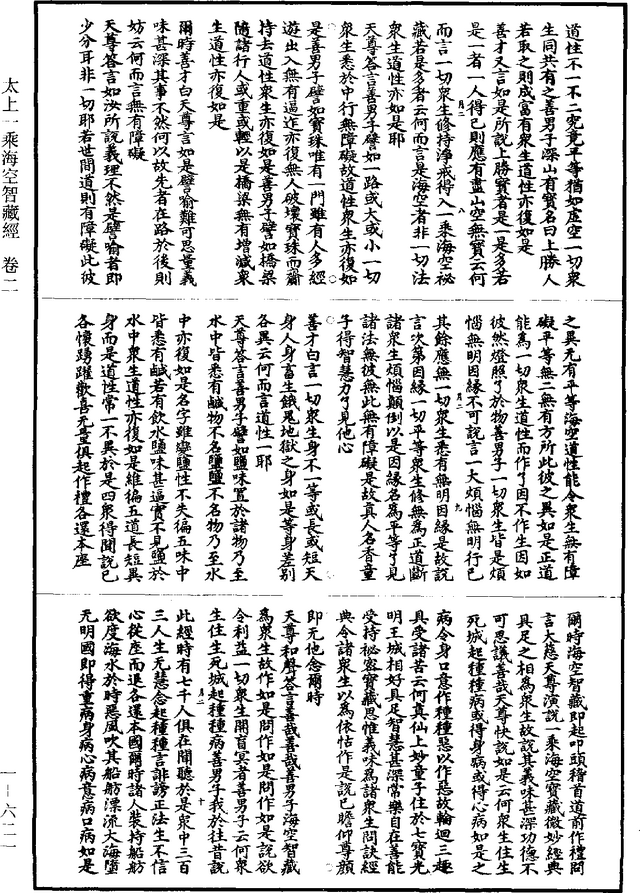 道性不一不二究竟平等猶如虛空一切衆
生同共有之善男子深山有寶名曰上勝人
若取之則成富有衆生道性亦復如是
善才又言如是所說上勝寶者是一是多若
是一者一人得已則應有盡山空無寶云何
而言一切衆生修持淨戒得入一乘海空祕
藏若是多者云何而言是海空者非一切法
衆生道性亦如是耶
天尊答言善男子譬如一路或大或小一切
衆生悉於中行無障礙故道性衆生亦復如
是善男子譬如寶珠唯有一門雖有人多經
遊出入無有逼迮亦復無人破壞寶珠而齎
持去道性衆生亦復如是善男子譬如橋梁
隨諸行人或重或輕以是橋梁無有增減衆
生道性亦復如是
爾時善才白天尊言如是譬喻難可思量義
味甚深其事不然何以故先者在路於後則
妨云何而言無有障礙
天尊答言如汝所說義理不然是譬喻者即
少分耳非一切耶若世間道則有障礙此彼
之異无有平等海空道性能令衆生無有障
礙平等無二無有方所此彼之異如是正道
能為一切衆生道性而作了因不作生因如
彼然燈照了於物善男子一切衆生皆是煩
惱無明因緣不可說言一人煩惱無明行已
其餘應無一切衆生悉有無明因緣是故說
言次第因緣一切平等衆生修無為正道斷
諸衆生煩惱顛倒以是因緣名為平等了見
諸法無彼無此無有障礙是故真人名香童
子得智慧力了見他心
善才白言一切衆生身不一等或長或短天
身人身畜生餓鬼地獄之身如是等身差別
各異云何而言道性一耶
天尊答言善男子譬如鹽味置於諸物乃至
水中皆悉有鹹物不名鹽鹽不名物乃至水
中亦復如是名字雖變鹽性不失徧五味中
皆悉有鹹若有飲水鹽味甚逼實不見鹽於
水中衆生道性亦復如是維徧五道長短異
身而是道性常一不異於是四衆得聞說已
各懷踴躍歡喜无量俱起作禮各還本座
爾時海空智藏即起叩頭稽首道前作禮問
言大慈天尊演說一乘海空寶藏微妙經典
具足之相為衆生故說其義味甚深功德不
可思議善哉天尊快說如是云何衆生住生
死城起種種病或得身病或得心病如是之
病令身口意作種種惡以作惡故輪迴三趣
具受諸苦云何真仙上妙童子住於七寶光
明王城相好具足智慧甚深常樂自在善能
受持祕密寶藏思惟義味為諸衆生問訣經
典令諸衆生以為依怙作是說已瞻仰尊顏
即无他念爾時
天尊和聲答言善哉善哉善男子海空智藏
為衆生故作如是問作如是問作如是說欲
令利益一切衆生開盲冥者善男子云何衆
生住生死城起種種病善男子我於往昔說
此經時有七千人俱在間聽於是衆中三百
三人生无慧念起種種言誹謗正法生不信
心從座而退各還本國爾時諸人裝持船舫
欲度海水於時惡風吹其船舫漂流大海墮
无明國即得重病身病心病意病口病如是
太上一乘海空智藏經 卷二
一—六二二